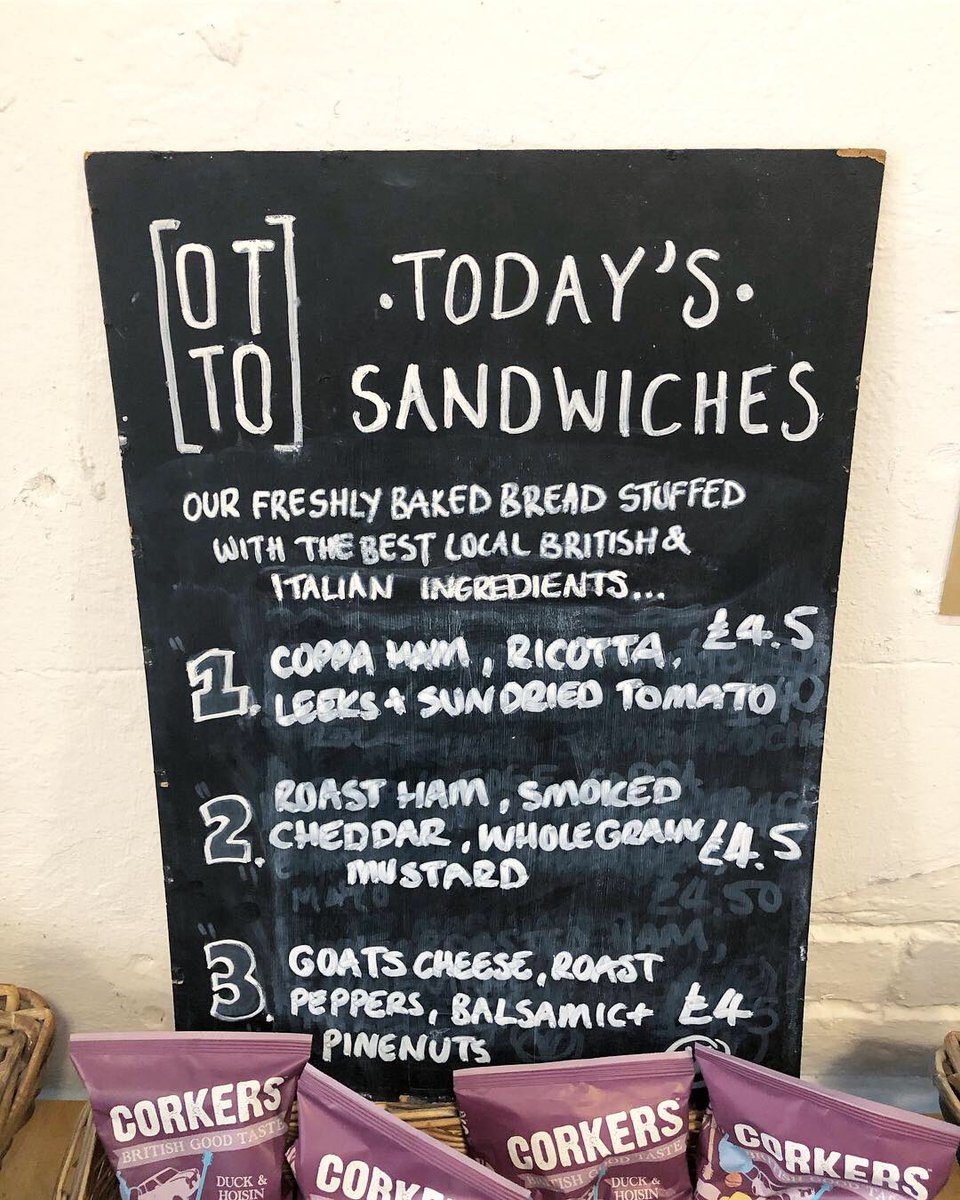 OT
TO
·TODAY'S·
SANDWICHES
OUR FRESHLY BAKED BREAD STUFFED
WITH THE BEST LOCAL BRITISH &
ITALIAN INGREDIENTS...
1. COPPA HAM, RICOTTA, £4.5
LEEKS + SUNDRIED TOMATO
2. ROAST HAM, SMOKED
CHEDDAR, WHOLEGRAIN £4.5
MUSTARD
3. GOATS CHEESE, ROAST
PEPPERS, BALSAMIC + £4
PINENUTS
CORKERS
BRITISH GOOD TASTE
DUCK &
HOISIN
CORKERS
CORKERS
BRITISH GOOD TASTE
DUCK &
HOISIN
CORKERS